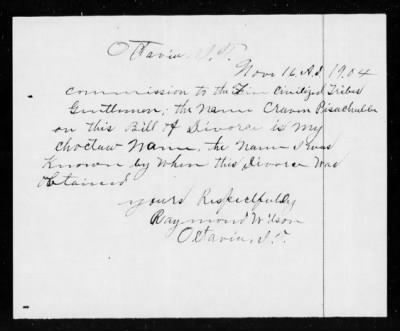 Octavia, I.T.
Nov. 16 A.D. 1904
Commission to the Five Civilized Tribes
Gentlemen; the name Cravin Pisachubbe
on this Bill of Divorce is my
Choctaw name, the name I was
known by when this Divorce was
obtained
yours Respectfully
Raymond Wilson
Octavia, I.T.